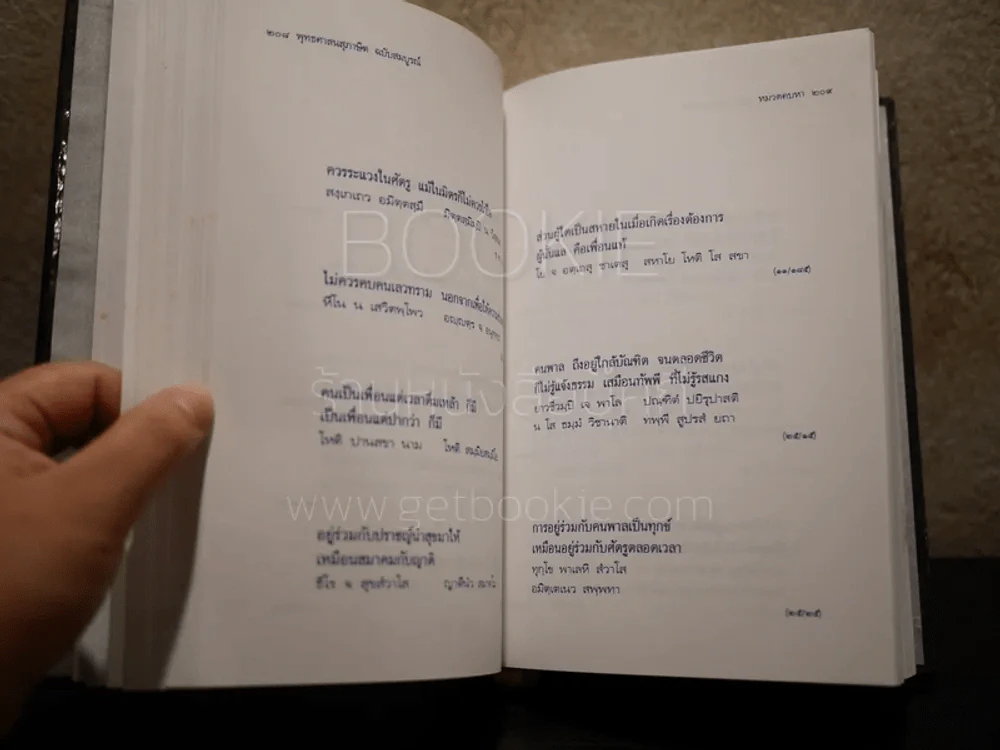 ๒๐๘ พุทธศาสนสุภาษิต ฉบับสมบูรณ์
ควรระแวงในศัตรู แม้ในมิตรก็ไม่ควรไว้ใจ
สงฺเกเถว อมิตฺตสฺมึ มิตฺตสฺมิมฺปิ น
ไม่ควรคบคนเลวทราม นอกจากเพื่อ
หีโน น เสวิตพฺโพว อญฺญตฺร จ
คนเป็นเพื่อนแต่เวลาดื่มเหล้า ก็มี
เป็นเพื่อนแต่ปากว่า ก็มี
โหติ ปานสขา นาม โหติ สมฺมิยสมฺมิโย
อยู่ร่วมกับปราชญ์นำสุขมาให้
เหมือนสมาคมกับญาติ
ธีโร จ สุขสํวาโส ญาตีนํว สมาคโม
หมวดคบหา ๒๐๙
ส่วนผู้ใดเป็นสหายในเมื่อเกิดเรื่องต้องการ
ผู้นั้นแล คือเพื่อนแท้
โย จ อตฺเถสุ ชาเตสุ สหาโย โหติ โส สขา
(๑๑/๑๘๕)
คนพาล ถึงอยู่ใกล้บัณฑิต จนตลอดชีวิต
ก็ไม่รู้แจ้งธรรม เสมือนทัพพี ที่ไม่รู้รสแกง
ยาวชีวมฺปิ เจ พาโล ปณฺฑิตํ ปยิรุปาสติ
น โส ธมฺมํ วิชานาติ ทพฺพี สูปรสํ ยถา
(๒๕/๑๕)
การอยู่ร่วมกับคนพาลเป็นทุกข์
เหมือนอยู่ร่วมกับศัตรูตลอดเวลา
ทุกฺโข พาเลหิ สํวาโส
อมิตฺเตเนว สพฺพทา
(๒๕/๒๕)
BOOKIE
www.getbookie.com